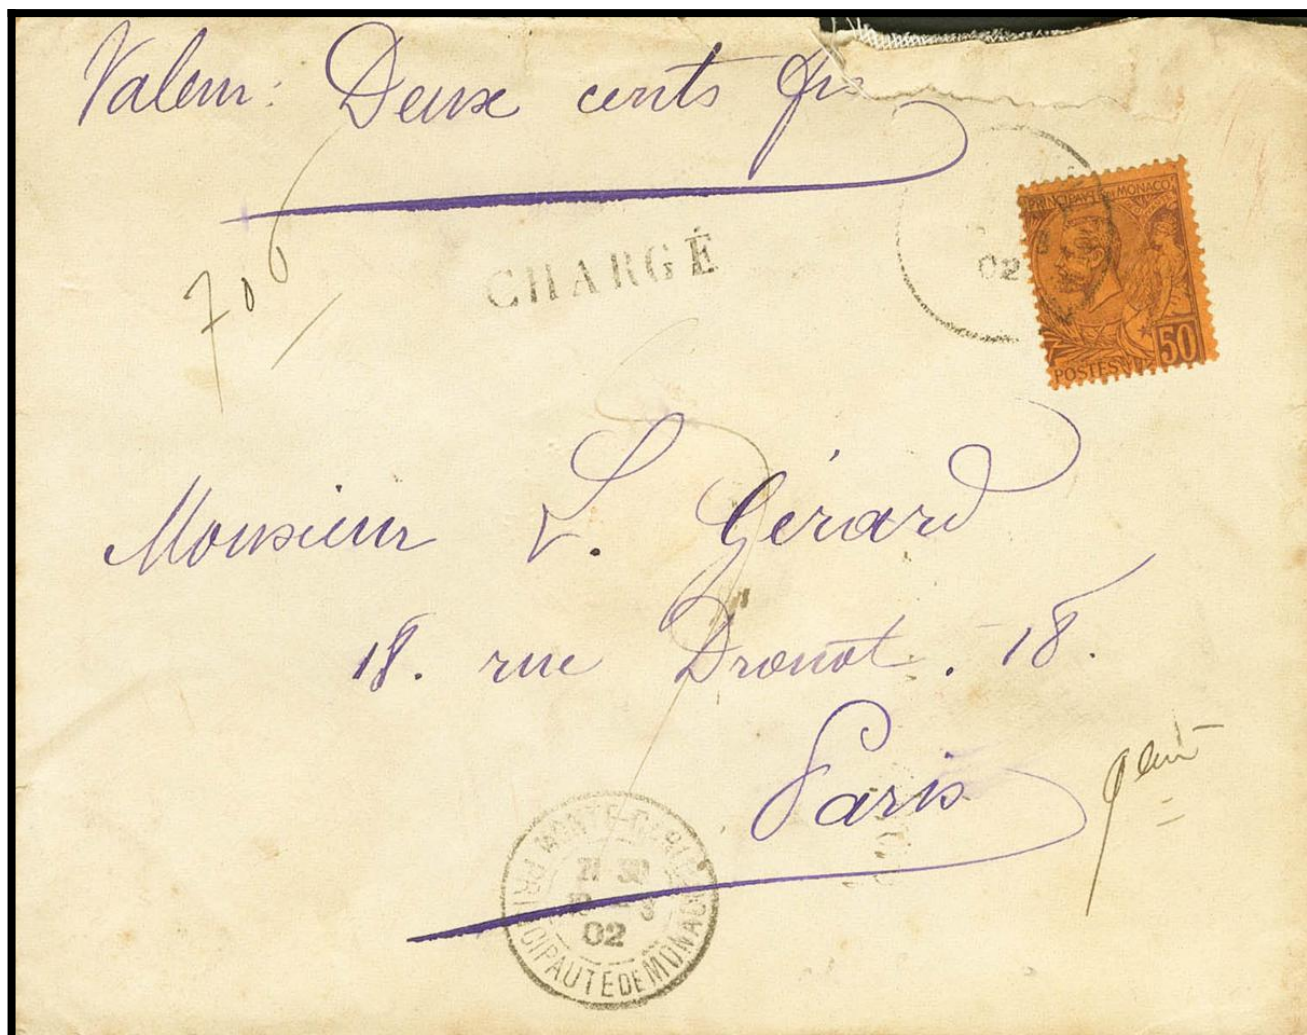 Valeur: Deux cents fr
CHARGÉ
PRINCIPAUTÉ DE MONACO
02
50
POSTES
700
Monsieur L. Gérard
18. rue Drouot. 18.
Paris
MONTE-CARLO
21 30
3
02
PRINCIPAUTÉ DE MONACO